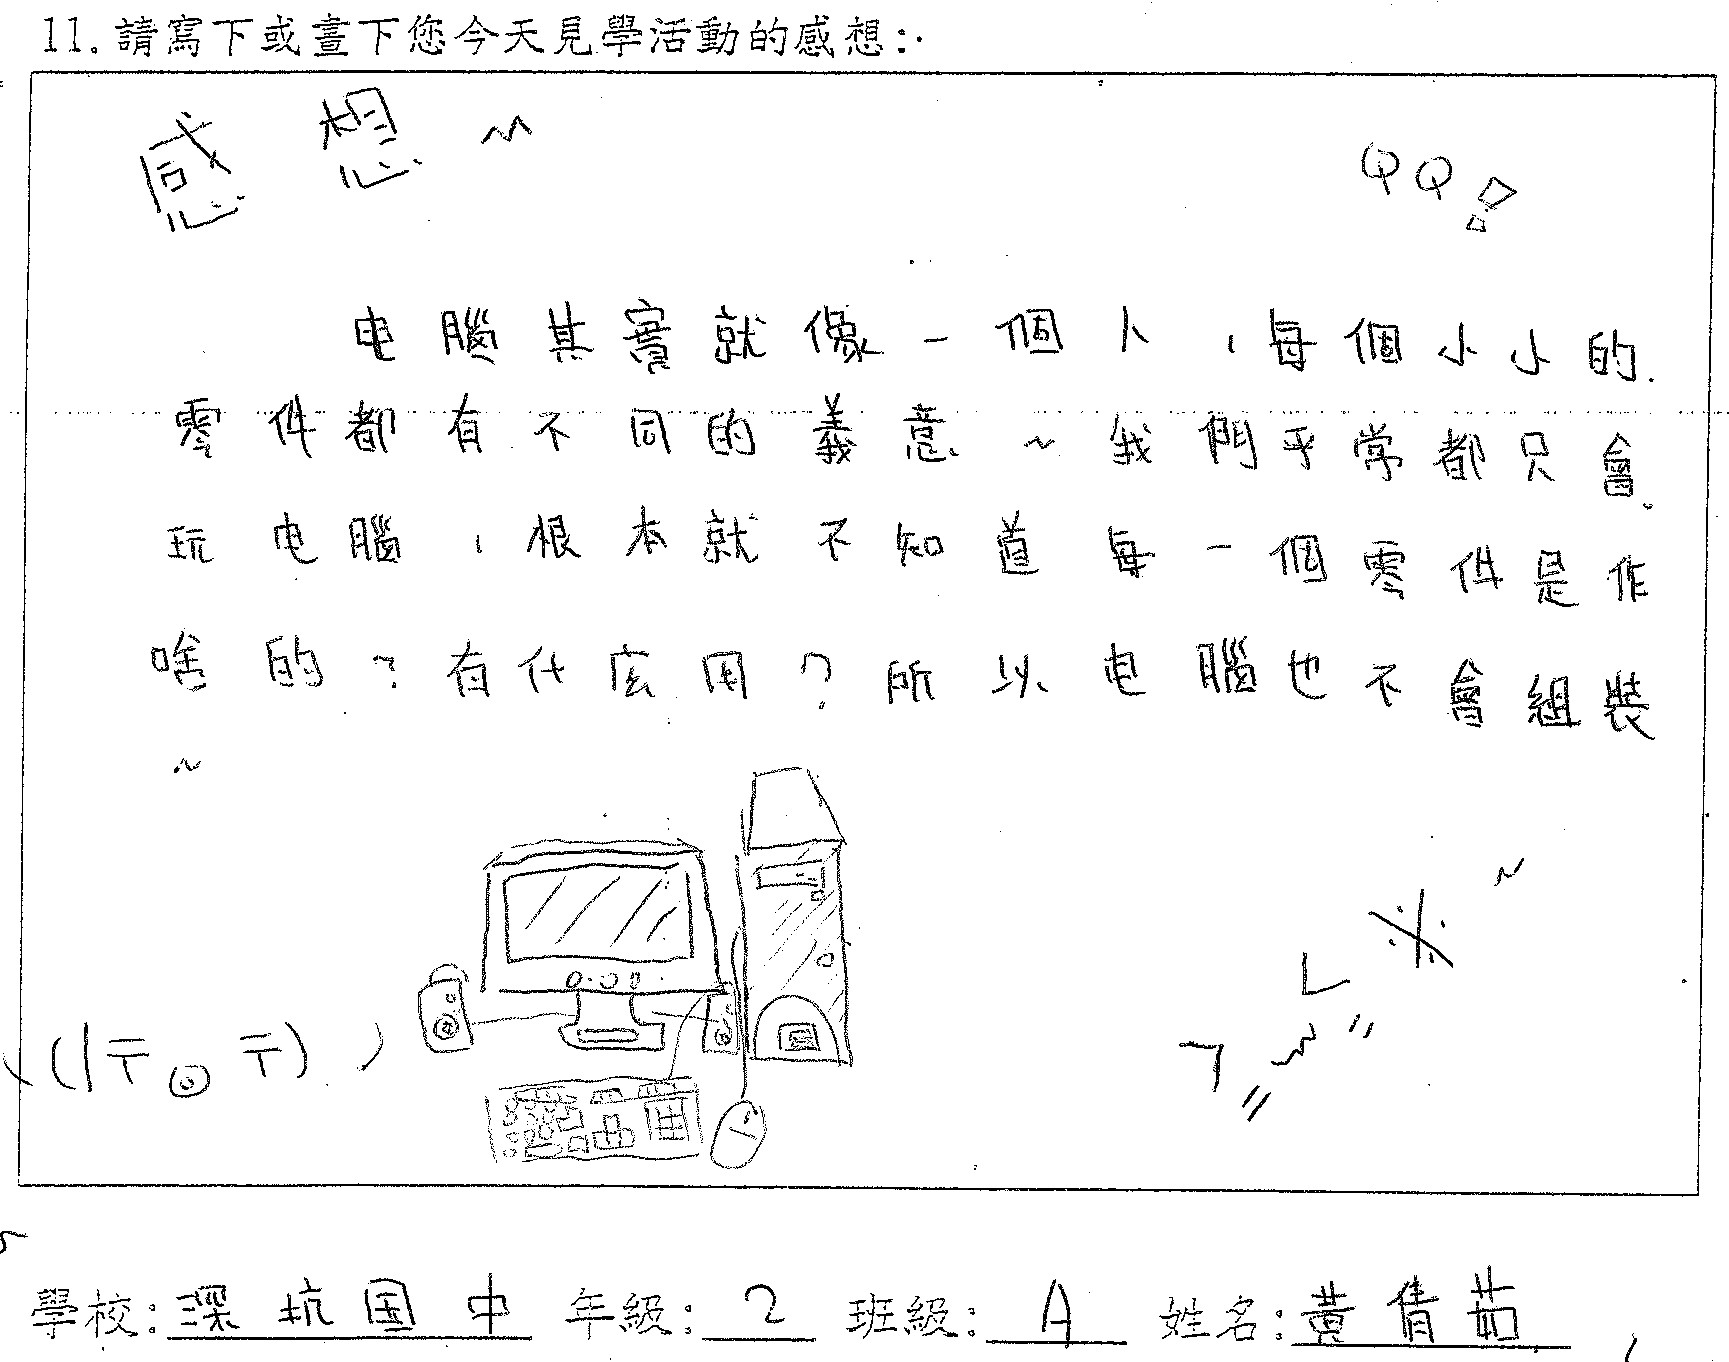 11.請寫下或畫下您今天見學活動的感想:
感想~
QQ!
电腦其實就像一個人,每個小小的
零件都有不同的義意~我們平常都只會
玩电腦,根本就不知道每一個零件是作
啥的?有什庅用?所以电腦也不會組裝
~
學校:深坑国中 年級:2 班級:A 姓名:黃倩茹